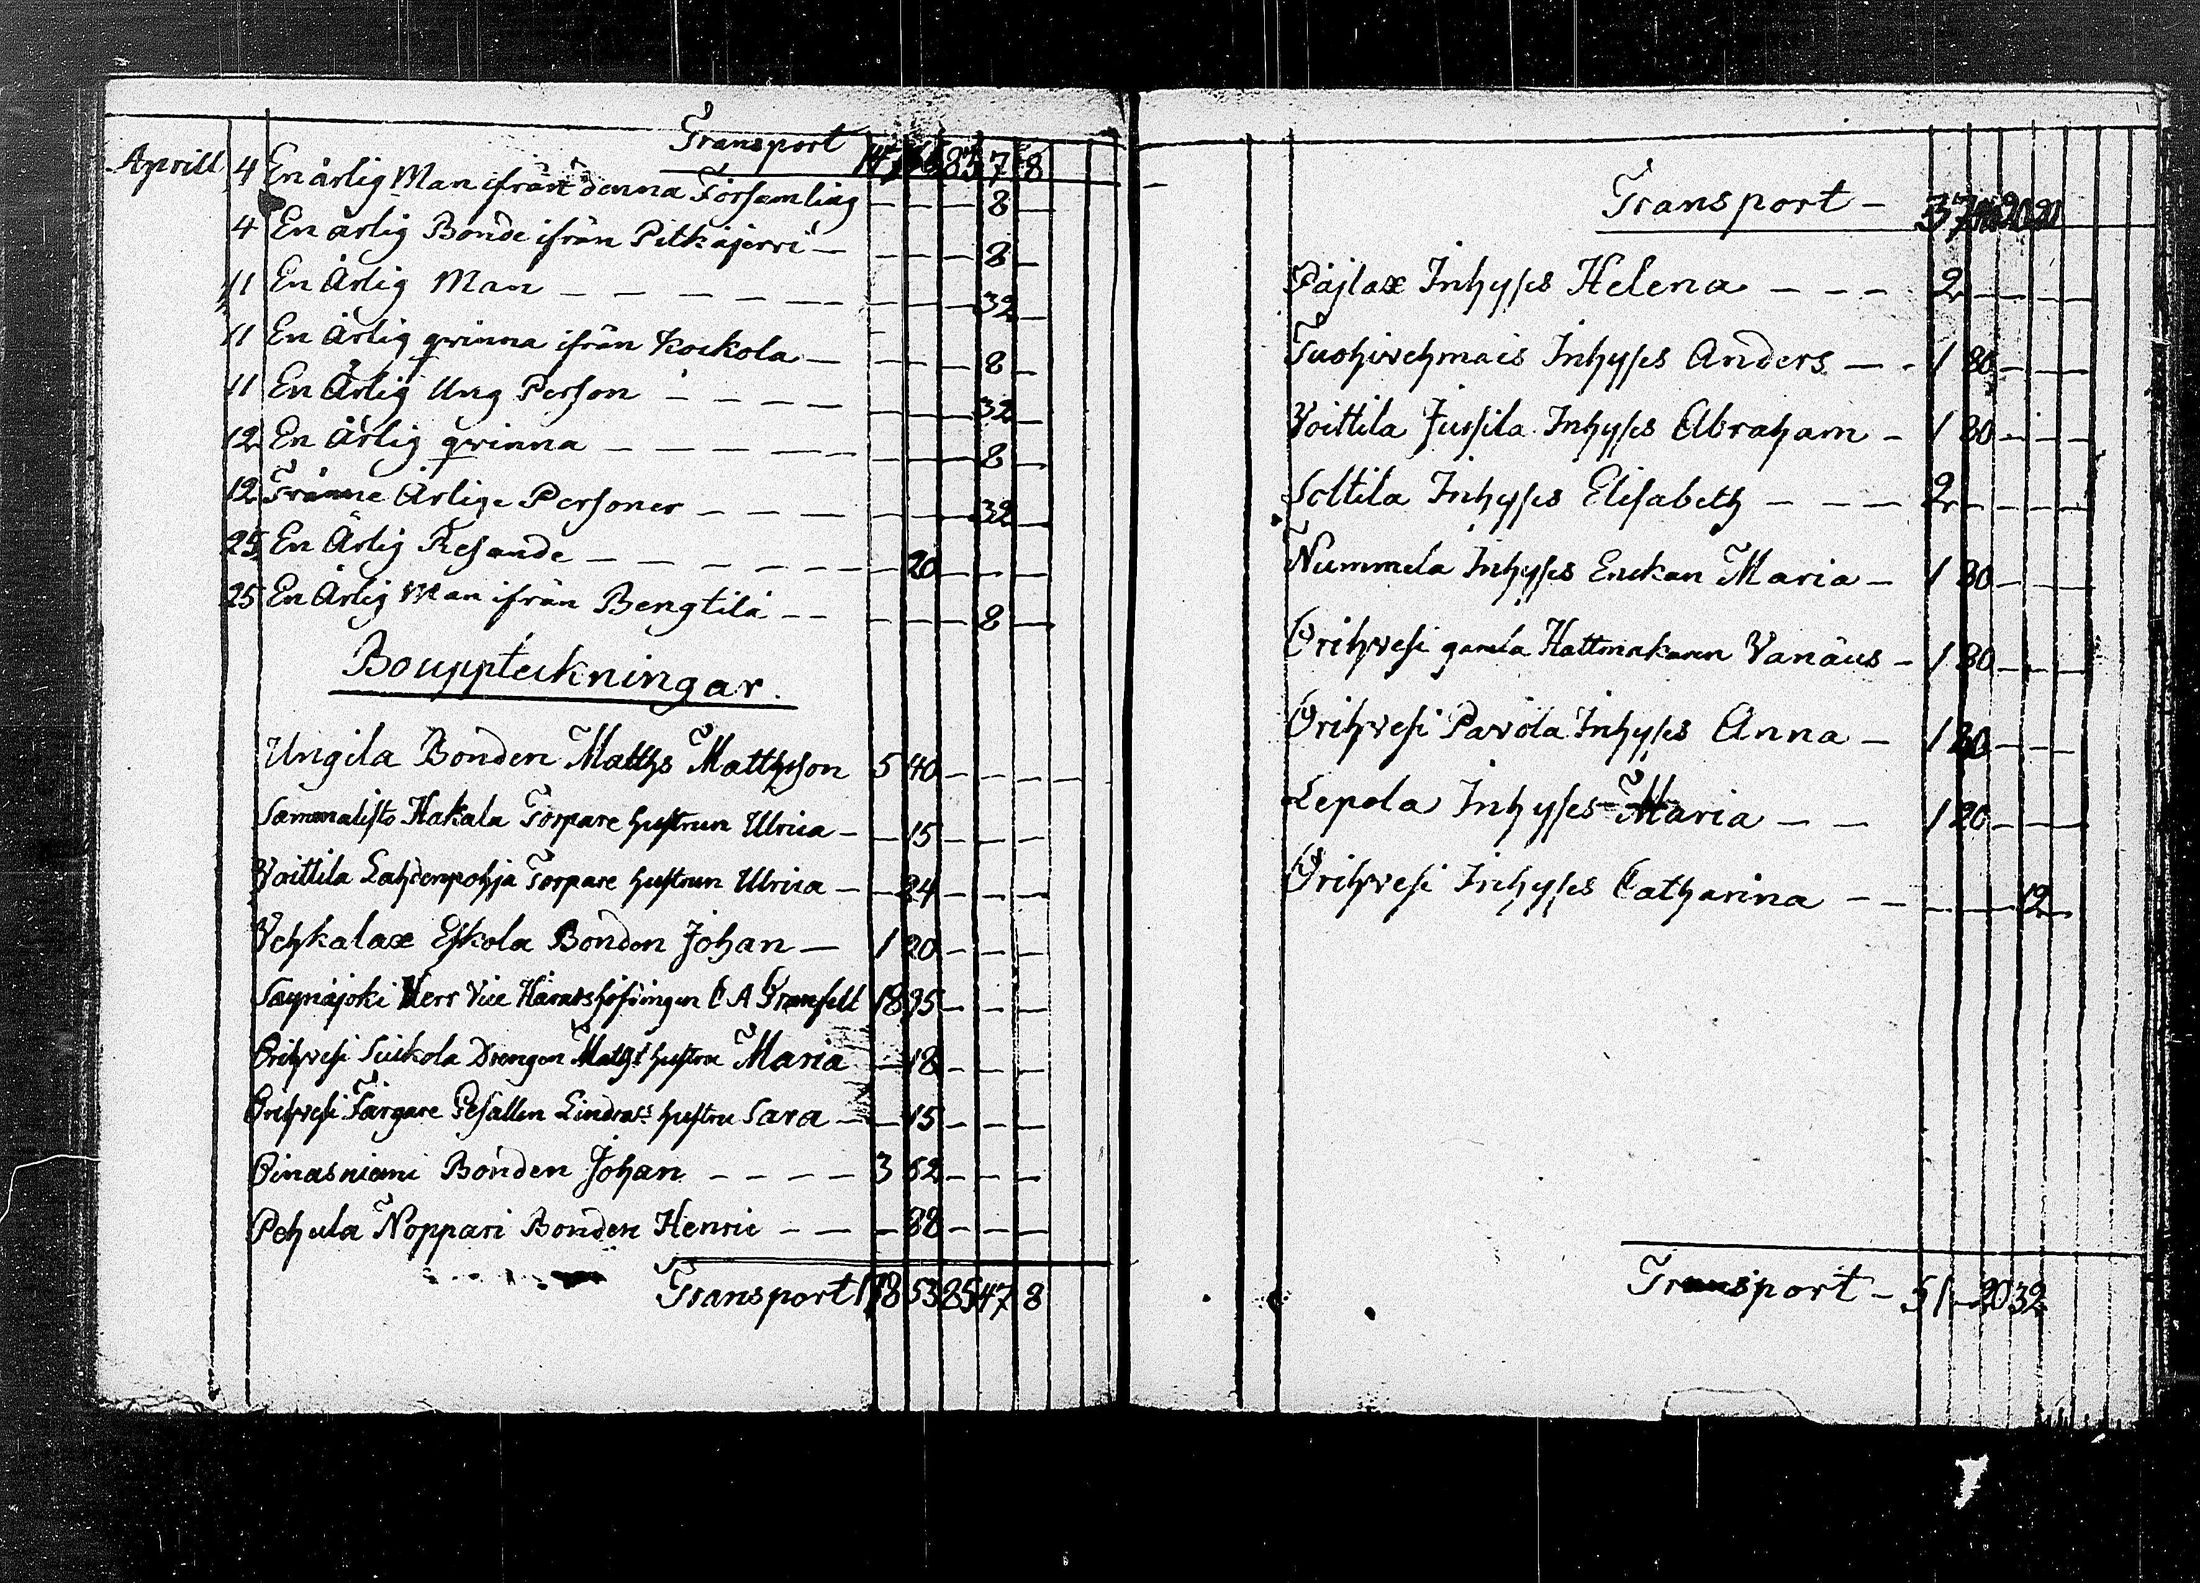 Transport 83 7 8
Aprill 4 En ärlig Man ifrån denna Församling — — — 8 —
4 En ärlig Bonde ifrån Pitkäjerri — — — — 8 —
11 En Ärlig Man — — — — — — — — 32 —
11 En Ärlig qvinna ifrån Kockola — — — — 8 —
11 En Ärlig Ung Person — — — — — — — 32 —
12 En Ärlig qvinna — — — — — — — — 8 —
12 Tvänne Ärlige Personer — — — — — — — 32 —
25 En Ärlig Resande — — — — — — — 20 — — —
25 En Ärlig Man ifrån Bengtilä — — — — — 8 —
Bouppteckningar.
Ungila Bonden Matths Matthsson 5 40 — — — —
Sammalisto Hakala Torpare hustrun Ulrica — — 15 — — —
Voittila Lahdenpohja Torpare hustrun Ulrica — — 24 — — —
Vehkalax Eskola Bonden Johan — 1 20 — — —
Säynäjoki Herr Vice Häradshöfdingen C A Granfelt 18 95 — — —
Orihvesi Suikola Drengen Maths hustru Maria — 18 — — —
Orihvesi Färgare Gesällen Lindroos hustru Sara — — 15 — — —
Pinasniemi Bonden Johan — — — — 3 52 — — —
Pehula Noppari Bonden Henric — — — 88 — — —
Transport 178 53 85 47 8
Transport — 37 20 20
Päjlax Inhyses Helena — — — 2 — — — —
Tuohivehmais Inhyses Anders — — 1 80 — — —
Voittila Jussila Inhyses Abraham — 1 80 — — —
Solttila Inhyses Elisabeth — — — 2 — — — —
Nummela Inhyses Enckan Maria — 1 80 — — —
Orihvesi gamla Hattmakaren Vanäus — 1 80 — — —
Orihvesi Pavola Inhyses Anna — 1 80 — — —
Lepola Inhyses Maria — — 1 20 — — —
Orihvesi Inhyses Catharina — — — — — 12 —
Transport — 51 — 20 32